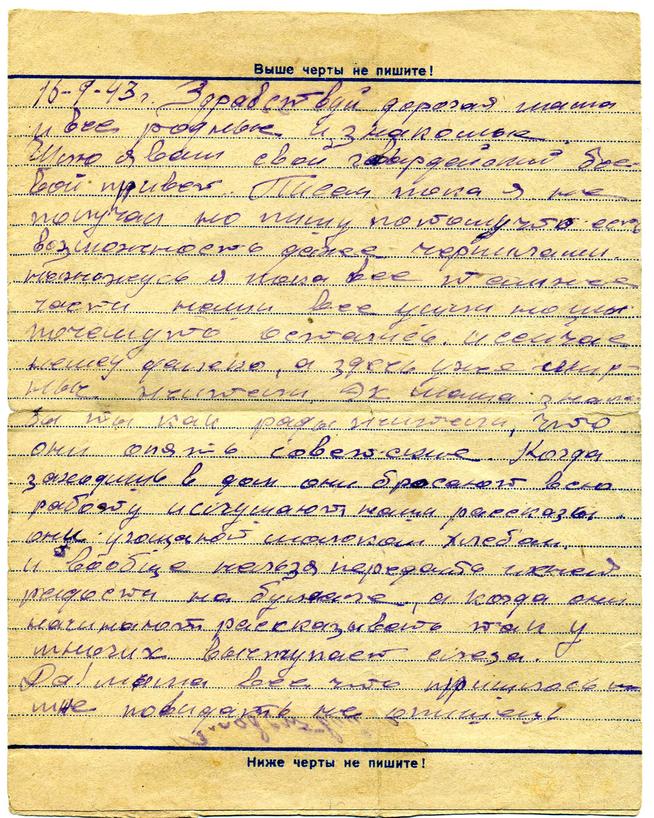 Выше черты не пишите!
16-9-43 г. Здравствуй дорогая мама
и все родные и знакомые.
Шлю я вам свой гвардейский бое-
вой привет. Писем пока я не
получал но пишу потому что есть
возможность даже чернилами.
нахожусь я пока все там же
части наши все ушли но мы
почему то остались. и сейчас
немец далеко, а здесь уже мир-
ных жители. Эх мама знала
бы ты как рады жители, что
они опять советские. Когда
заходишь в дом они бросают всю
работу и слушают наши рассказы.
они угощают молоком хлебам.
и вообще нельзя передать ихней
радости на бумаге, а когда они
начинают рассказывать так у
многих выступает слеза.
Да! мама всё что пришлось
мне повидать не опишешь
Ниже черты не пишите!